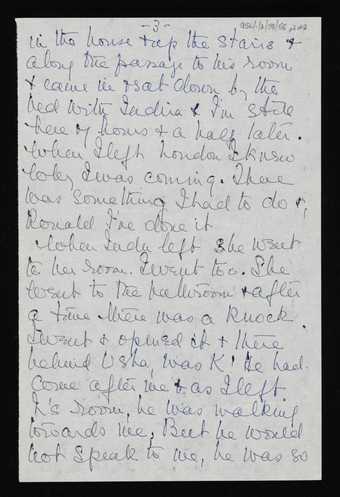 - 3 -
in the house & up the stairs &
along the passage to his room
& came in & sat down by the
bed with Indira & I'm still
here 4 hours & a half later.
When I left London I knew
why I was coming. There
was something I had to do &,
Ronald I've done it
When Indu left she went
to her room. I went too. She
went to the bathroom & after
a time there was a knock.
I went & opened it & there
behind Usha, was K! He had
come after me & as I left
K's room, he was walking
towards me, But he would
not speak to me, he was so